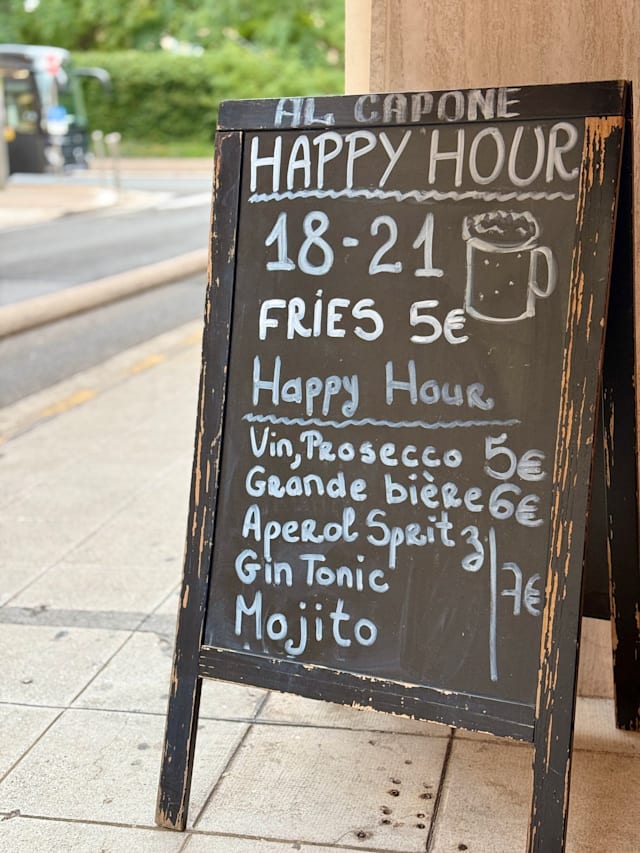 AL CAPONE
HAPPY HOUR
18-21
FRIES 5€
Happy Hour
Vin, Prosecco 5€
Grande bière 6€
Aperol Spritz
Gin Tonic 7€
Mojito